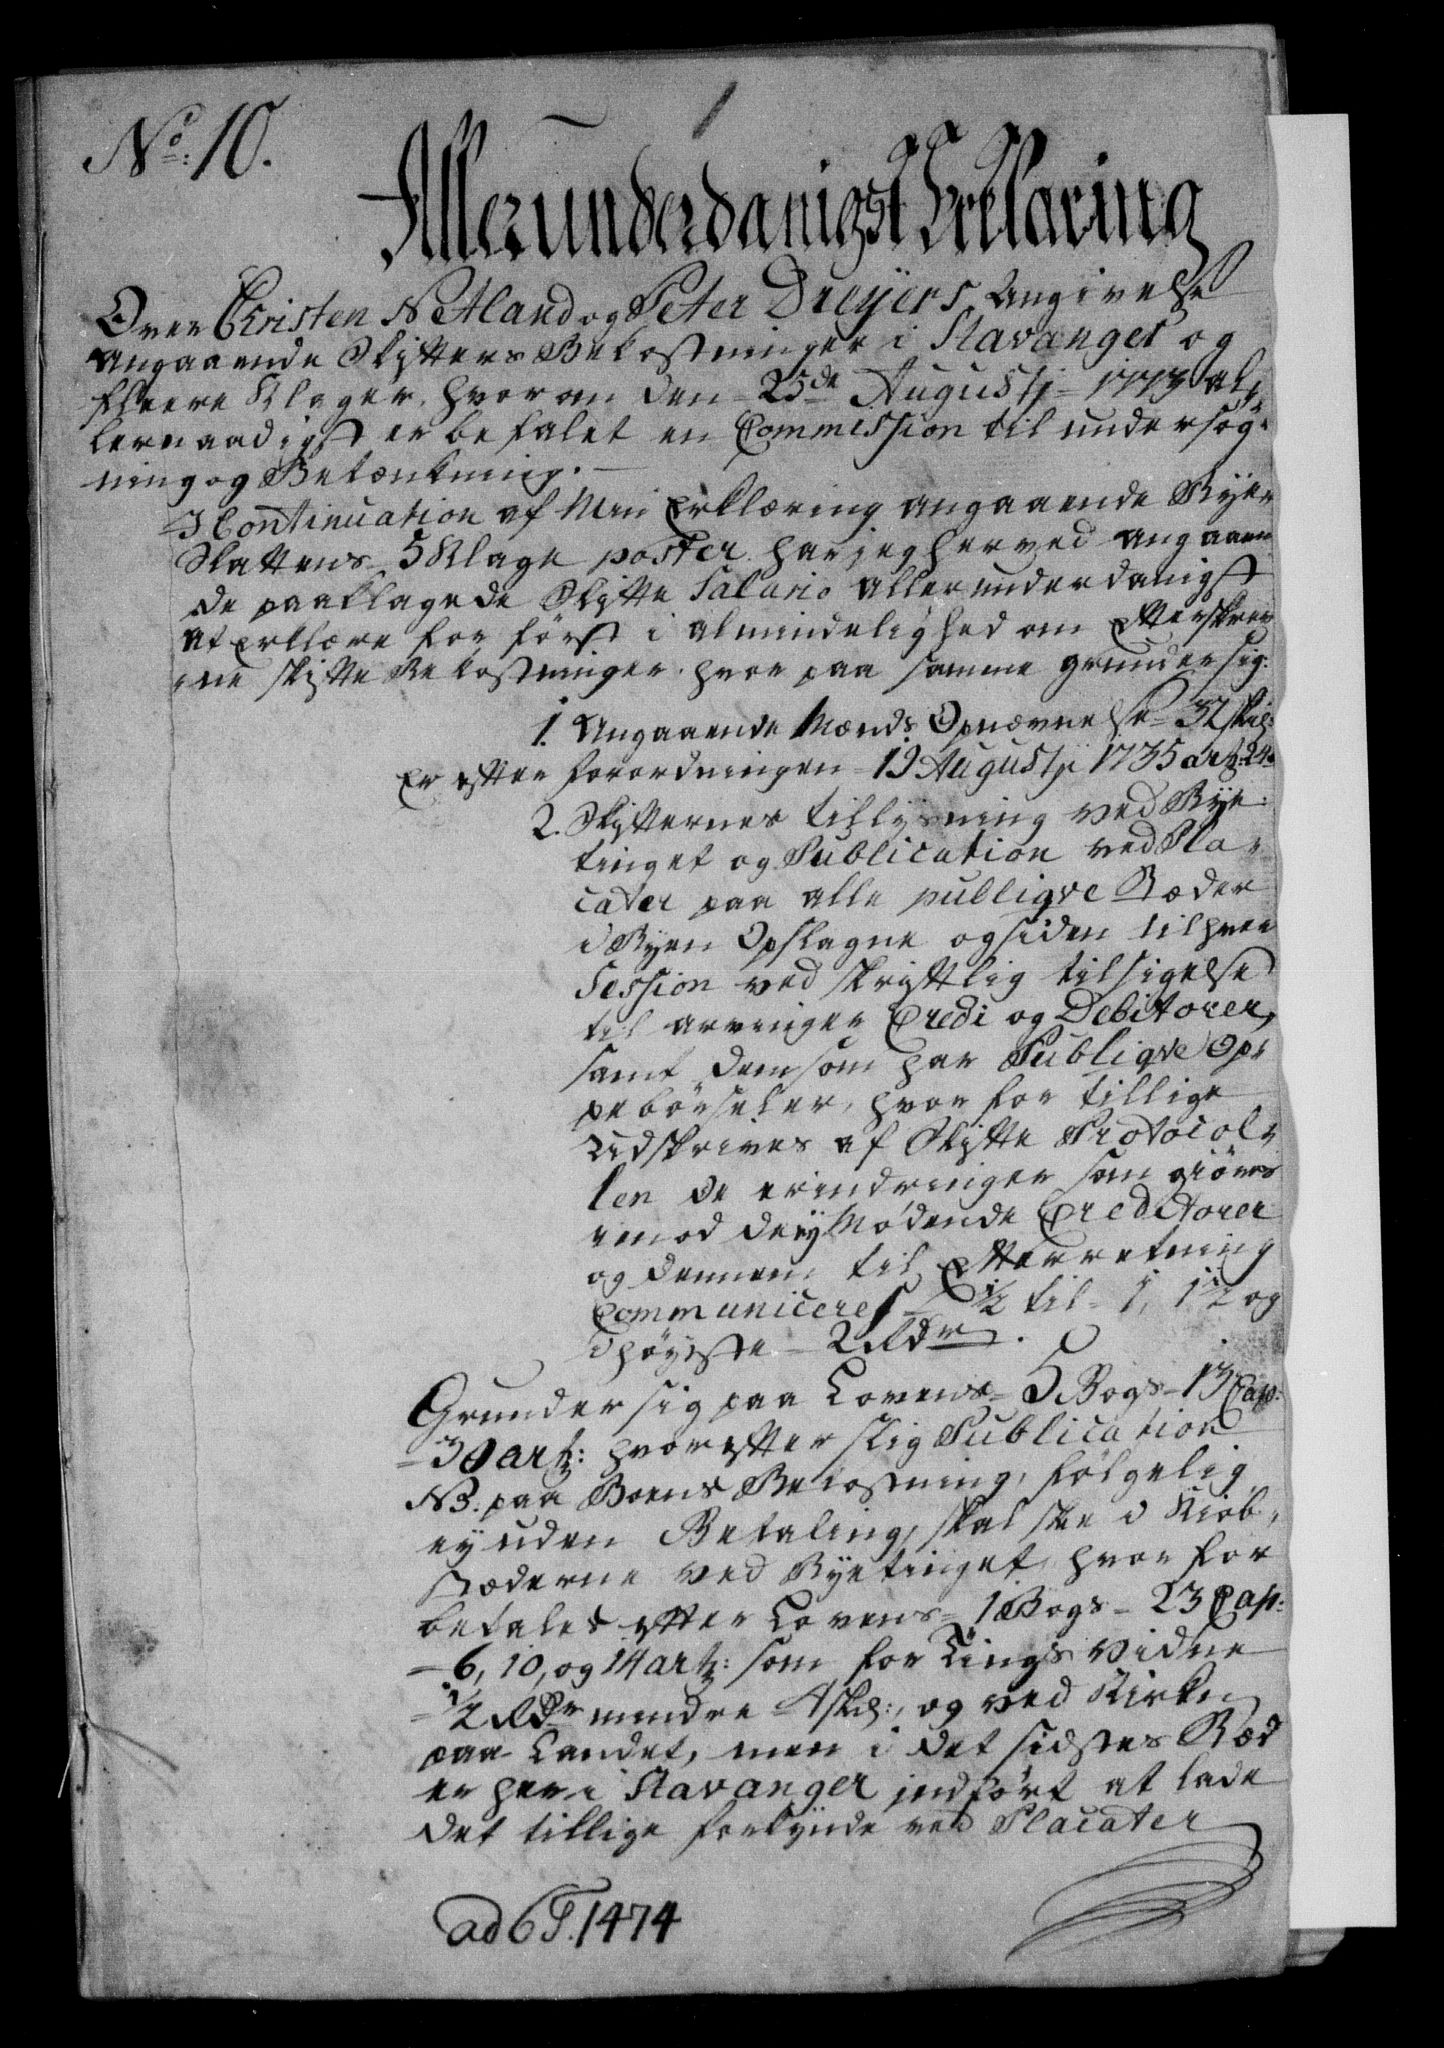 No: 10.
1
Allerunderdanigst Erklaring
Over Christen Netland og Peter Dreyers Angivelse
angaaende Skifters Bekostninger i Stavanger og
fleere Klager, hvorom den 25de Augustj 1773 al,
lernaadigst er befalet en Commission til undersøg,
ning og Betænkning.
I Continuation af Min Erklæring angaaende Byen
Skattens 5 Klage poster har jeg herved angaaen
de paaklagede Skifte Salario allerunderdanigst
at erklære for først i almindelighed om Efterskrev
ne skifte Bekostninger hvor paa samme grunder sig:
1. Angaaende Mænds Opnævnelse 32 skil:
er efter forordningen 19 Augustj 1735 art: 24.
2. Skifternes tillysning ved Bye
tinget og Publication ved Pla,
cater paa alle publiqve Stæder
i Byen Opslagne og siden til hver
Session ved skriftlig tilsigelse
til arvinger Credi og Debitorer,
samt dem som har Publiqve Op,
pebørseler, hvor for tillige
Udskrives af Skifte Protocol,
len de erindringer som giøres
imod de ey Mødende Creditorer
og dennem til Efterretning
Communiceres ½ til 1, 1½ og
i høyste 2 Rdr.
Grunder sig paa Lovens 5 Bogs 13 Cap:
30 art: hvorefter slig Publication
NB. paa Boens Bekostning, følgelig
ey uden Betaling, skal skee i Kiøb,
stæderne ved Byetinget, hvor for
betales efter Lovens 1 Bogs 23 Cap:
6, 10, og 14 art: som for Tings vidne
½ Rdr mindre 4 sk:, og ved Kirken
paa Landet, men i det sidstes Stæd
er her i Stavanger indført at lade
det tillige forkynde ved Placater
ad 6 T. 1474